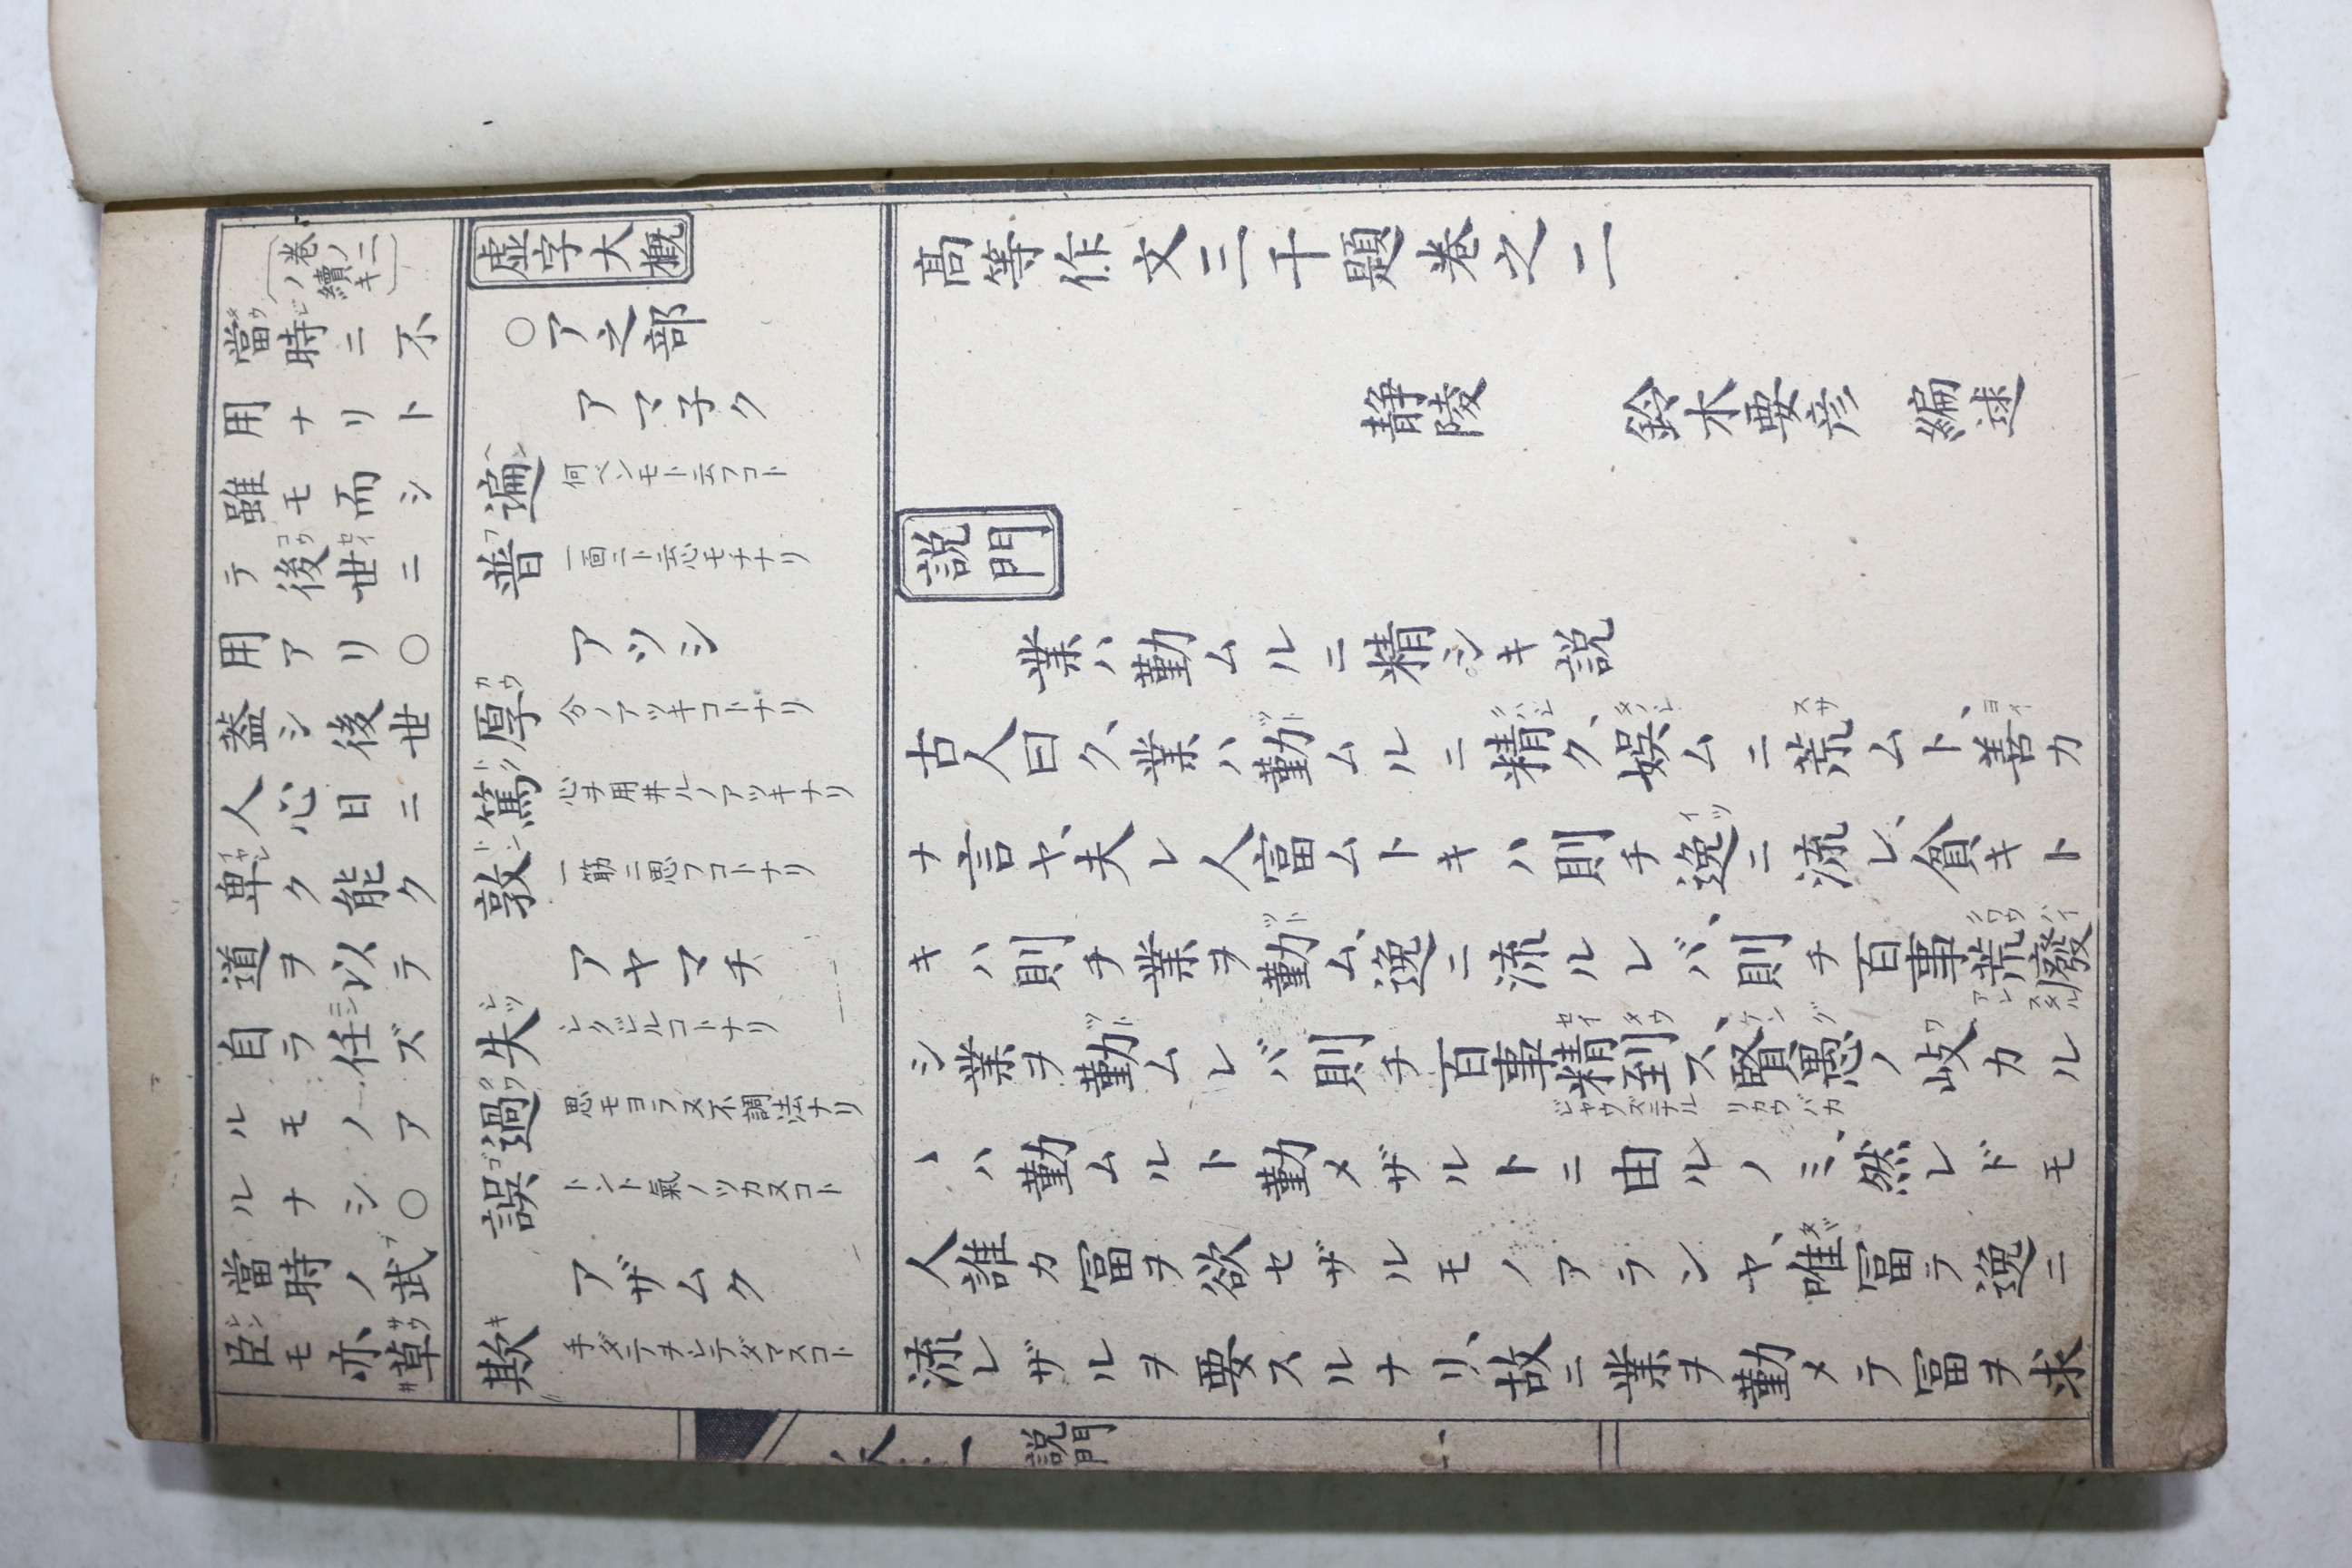 〔卷ノ二
ノ續キ〕
當時ニ不
用ナリト
雖モ而シ
テ後世ニ
用アリ○
葢シ後世
人心日ニ
卑ク能ク
道ヲ以テ
自ラ任ズ
ルモノア
ルナシ○
當時ノ武
臣モ亦草
虚字大概
○ア之部
アマ子ク
遍 何ベンモト云フコト
普 一面ニト云心モチナリ
アツシ
厚 分ノアツキコトナリ
篤 心ヲ用井ルノアツキナリ
敦 一筋ニ思フコトナリ
アヤマチ
失 シクジルコトナリ
過 思モヨラヌ不調法ナリ
誤 トント氣ノツカヌコト
アザムク
欺 手ダテヲシテダマスコト
高等作文三千題卷之二
静陵 鈴木要彦 編述
説門
業ハ勤ムルニ精シキ説
古人曰ク、業ハ勤ムルニ精ク、娯ムニ荒ムト、善カ
ナ言ヤ、夫レ人富ムトキハ則チ逸ニ流レ、貧キト
キハ則チ業ヲ勤ム、逸ニ流ルレバ、則チ百事荒廢
シ業ヲ勤ムレバ則チ百事精到ス、賢愚ノ岐カル
ヽハ勤ムルト勤メザルトニ由ルノミ、然レドモ
人誰カ冨ヲ欲セザルモノアランヤ、唯冨テ逸ニ
流レザルヲ要スルナリ、故ニ業ヲ勤メテ冨ヲ求
説門
一